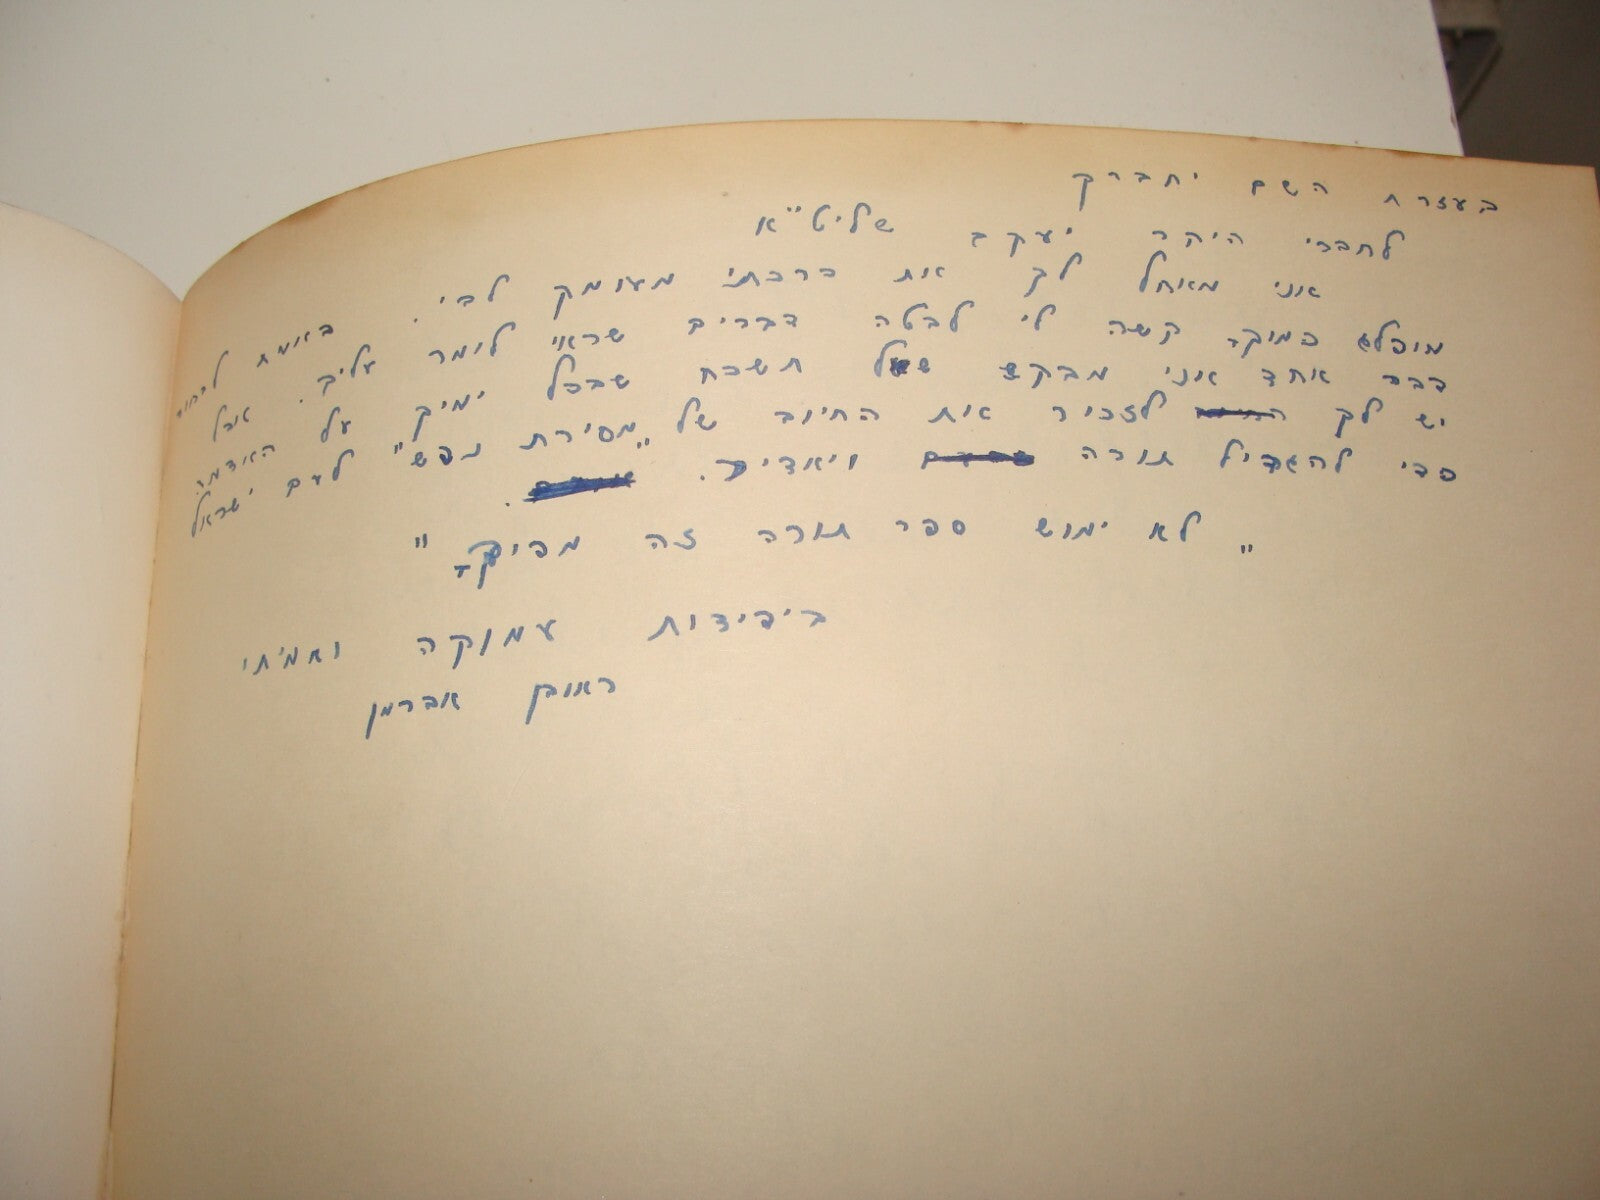 בעזרת השם יתברך
לחברי היקר יעקב שליט"א
אני מאחל לך את ברכתי מעומק לבי. באמת לבחור
מופלג כמוך קשה לי לבטה דברים שראוי לומר עליך. אבל
דבר אחד אני מבקש שאל תשכח שבכל ימיך על האדמה
יש לך לזכור את החיוב של "מסירת נפש" לעם ישראל
כדי להגדיל תורה ויאדיר.
"לא ימוש ספר תורה זה מפיך"
בידידות עמוקה ואמיתי
ראובן אברמן